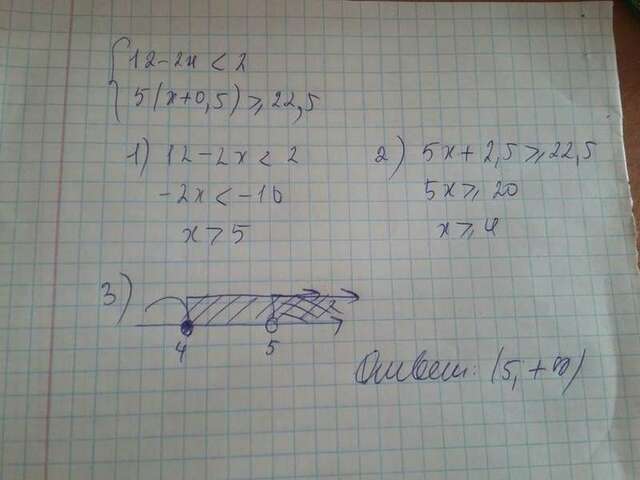 12-2x < 2
5(x+0,5) ⩾ 22,5
1) 12-2x < 2
-2x < -10
x > 5
2) 5x + 2,5 ⩾ 22,5
5x ⩾ 20
x ⩾ 4
3)
4 5
Ответ: (5, +∞)